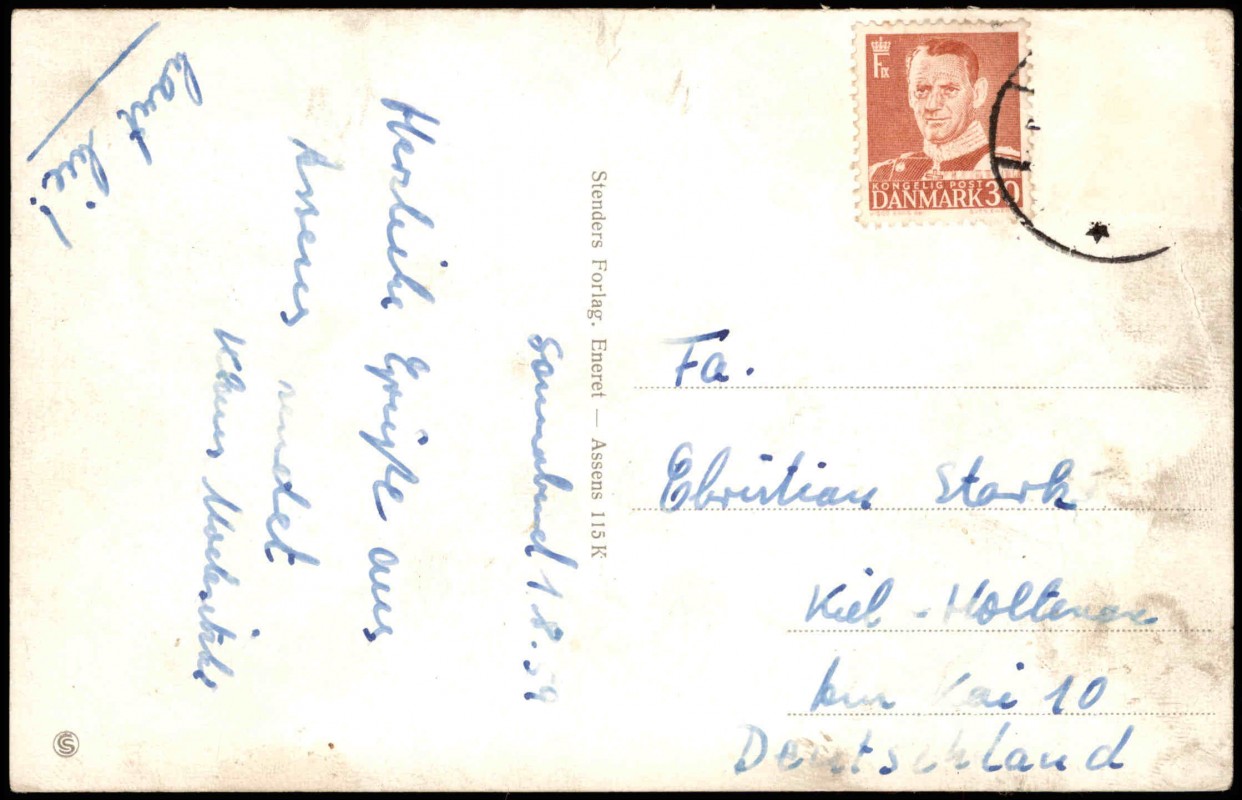 Sonnabend 1.8.59
Herzliche Grüße aus
Assens sendet
Klaus
Stenders Forlag. Eneret — Assens 115 K
KONGELIG POST
DANMARK 30
Fa.
Christian Stark
Kiel-Holtenau
Am Kai 10
Deutschland